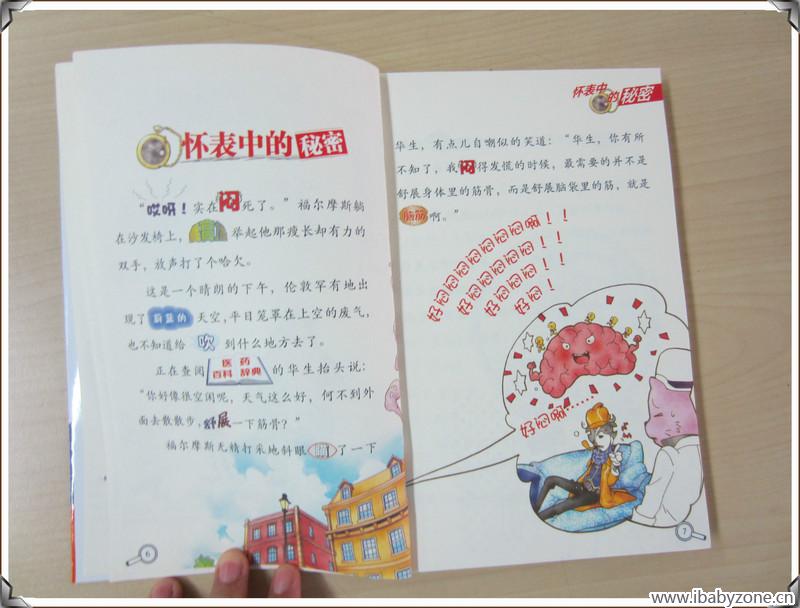 怀表中的秘密
“哎呀！实在闷死了。”福尔摩斯躺
在沙发椅上，举起他那瘦长却有力的
双手，放声打了个哈欠。
这是一个晴朗的下午，伦敦罕有地出
现了蔚蓝的天空，平日笼罩在上空的废气，
也不知道给吹到什么地方去了。
正在查阅医药百科辞典的华生抬头说：
“你好像很空闲呢，天气这么好，何不到外
面去散散步，舒展一下筋骨？”
福尔摩斯无精打采地斜眼瞄了一下
6
怀表中的秘密
华生，有点儿自嘲似的笑道：“华生，你有所
不知了，我闷得发慌的时候，最需要的并不是
舒展身体里的筋骨，而是舒展脑袋里的筋，就是
脑筋啊。”
好闷闷闷闷闷闷啊！！
好闷闷闷闷闷！！
好闷闷闷！！
好闷！
好闷啊……
7
www.ibabyzone.cn